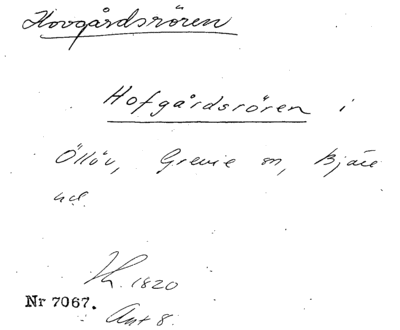 Hovgårdsrören
Hofgårdsrören i
Öllöv, Grevie sn, Bjäre
hd
1820
Nr 7067.
Akt 8.